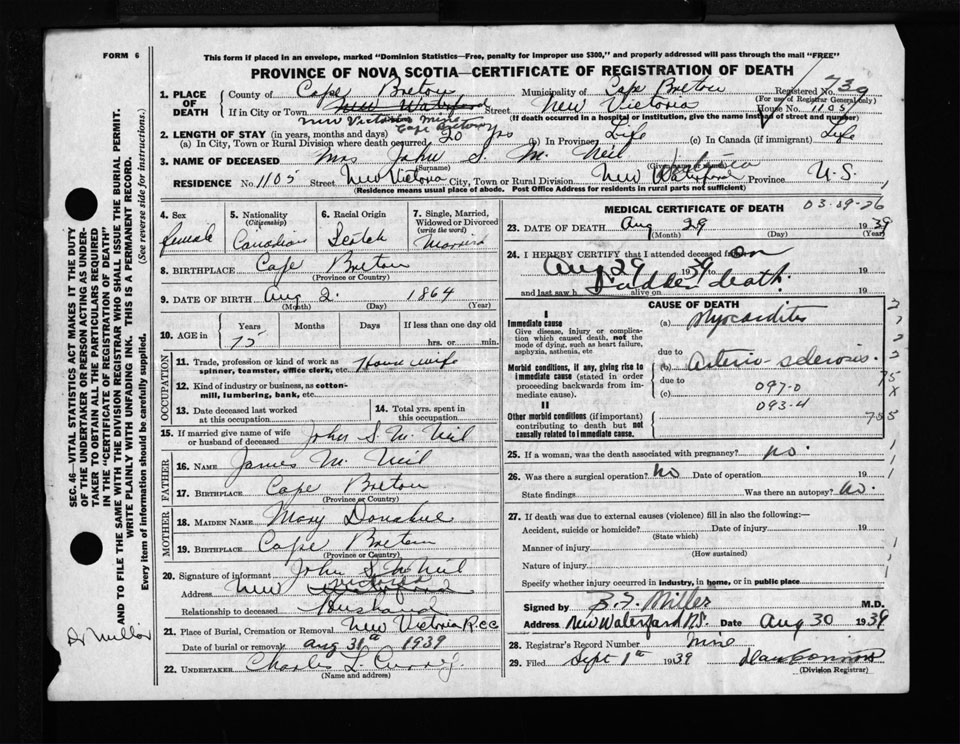 FORM 6
This form if placed in an envelope, marked "Dominion Statistics—Free, penalty for improper use $300," and properly addressed will pass through the mail "FREE"
PROVINCE OF NOVA SCOTIA—CERTIFICATE OF REGISTRATION OF DEATH
1. PLACE OF DEATH
County of Cape Breton Municipality of Cape Breton Registered No. 739
(For use of Registrar General only)
If in City or Town New Waterford Street New Victoria House No. 1105
New Victoria Mines
(If death occurred in a hospital or institution, give the name instead of street and number)
Cape Breton
2. LENGTH OF STAY (in years, months and days)
(a) In City, Town or Rural Division where death occurred 20 yrs (b) In Province Life (c) In Canada (if immigrant) Life
3. NAME OF DECEASED Mrs John S. McNeil
(Surname) (Given names)
RESIDENCE No. 1105 Street New Victoria City, Town or Rural Division New Waterford Province N.S.
(Residence means usual place of abode. Post Office Address for residents in rural parts not sufficient)
4. Sex female
5. Nationality (Citizenship) Canadian
6. Racial Origin Scotch
7. Single, Married, Widowed or Divorced (write the word) Married
8. BIRTHPLACE Cape Breton
(Province or Country)
9. DATE OF BIRTH Aug 2. 1864
(Month) (Day) (Year)
10. AGE in Years Months Days If less than one day old
75 hrs. or min.
OCCUPATION
11. Trade, profession or kind of work as spinner, teamster, office clerk, etc. Housewife
12. Kind of industry or business, as cotton-mill, lumbering, bank, etc.
13. Date deceased last worked at this occupation
14. Total yrs. spent in this occupation
15. If married give name of wife or husband of deceased John S. McNeil
FATHER
16. NAME James McNeil
17. BIRTHPLACE Cape Breton
(Province or Country)
MOTHER
18. MAIDEN NAME Mary Donahue
19. BIRTHPLACE Cape Breton
(Province or Country)
20. Signature of informant John S McNeil
Address New Victoria
Relationship to deceased Husband
21. Place of Burial, Cremation or Removal New Victoria R.C.C
Date of burial or removal Aug 31st 1939
22. UNDERTAKER Charles L Curry
(Name and address)
MEDICAL CERTIFICATE OF DEATH
03-09-26
23. DATE OF DEATH Aug 29 1939
(Month) (Day) (Year)
24. I HEREBY CERTIFY that I attended deceased from on
Aug 29 1939 to 19
and last saw h alive on Sudden death. 19
CAUSE OF DEATH
I
Immediate cause
Give disease, injury or complication which caused death, not the mode of dying, such as heart failure, asphyxia, asthenia, etc
(a) Myocarditis
due to
Morbid conditions, if any, giving rise to immediate cause (stated in order proceeding backwards from immediate cause).
(b) Arterio-sclerosis.
due to
(c) 097-0
093-4
II
Other morbid conditions (if important) contributing to death but not causally related to immediate cause.
25. If a woman, was the death associated with pregnancy? no.
26. Was there a surgical operation? No Date of operation 19
State findings Was there an autopsy? No.
27. If death was due to external causes (violence) fill in also the following:—
Accident, suicide or homicide? Date of injury 19
(State which)
Manner of injury
(How sustained)
Nature of injury
Specify whether injury occurred in industry, in home, or in public place
Signed by B. F. Miller M.D.
Address New Waterford N.S. Date Aug 30 1939
28. Registrar's Record Number nine
29. Filed Sept 1st 1939 Dan Connors
(Division Registrar)
SEC. 46—VITAL STATISTICS ACT MAKES IT THE DUTY OF THE UNDERTAKER OR PERSON ACTING AS UNDERTAKER TO OBTAIN ALL THE PARTICULARS REQUIRED IN THE "CERTIFICATE OF REGISTRATION OF DEATH"
AND TO FILE THE SAME WITH THE DIVISION REGISTRAR WHO SHALL ISSUE THE BURIAL PERMIT.
WRITE PLAINLY WITH UNFADING INK. THIS IS A PERMANENT RECORD.
Every item of information should be carefully supplied. (See reverse side for instructions.)
Dr Miller